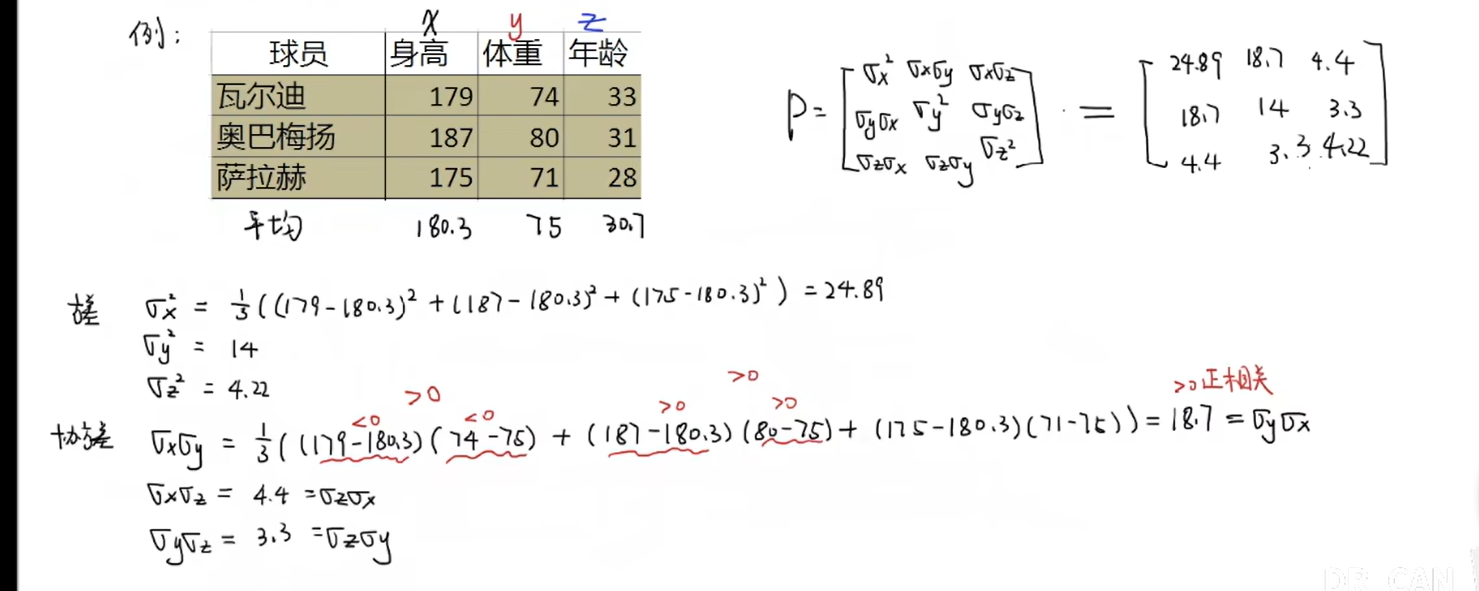 例：
x y z
球员 身高 体重 年龄
瓦尔迪 179 74 33
奥巴梅扬 187 80 31
萨拉赫 175 71 28
平均 180.3 75 30.7
P = [ σx² σxσy σxσz
σyσx σy² σyσz
σzσx σzσy σz² ]
= [ 24.89 18.7 4.4
18.7 14 3.3
4.4 3.3 4.22 ]
方差 σx² = 1/3 ((179-180.3)² + (187-180.3)² + (175-180.3)²) = 24.89
σy² = 14
σz² = 4.22
>0 >0 >0正相关
<0 <0 >0 >0
协方差 σxσy = 1/3 ((179-180.3)(74-75) + (187-180.3)(80-75) + (175-180.3)(71-75)) = 18.7 = σyσx
σxσz = 4.4 = σzσx
σyσz = 3.3 = σzσy
DR_CAN